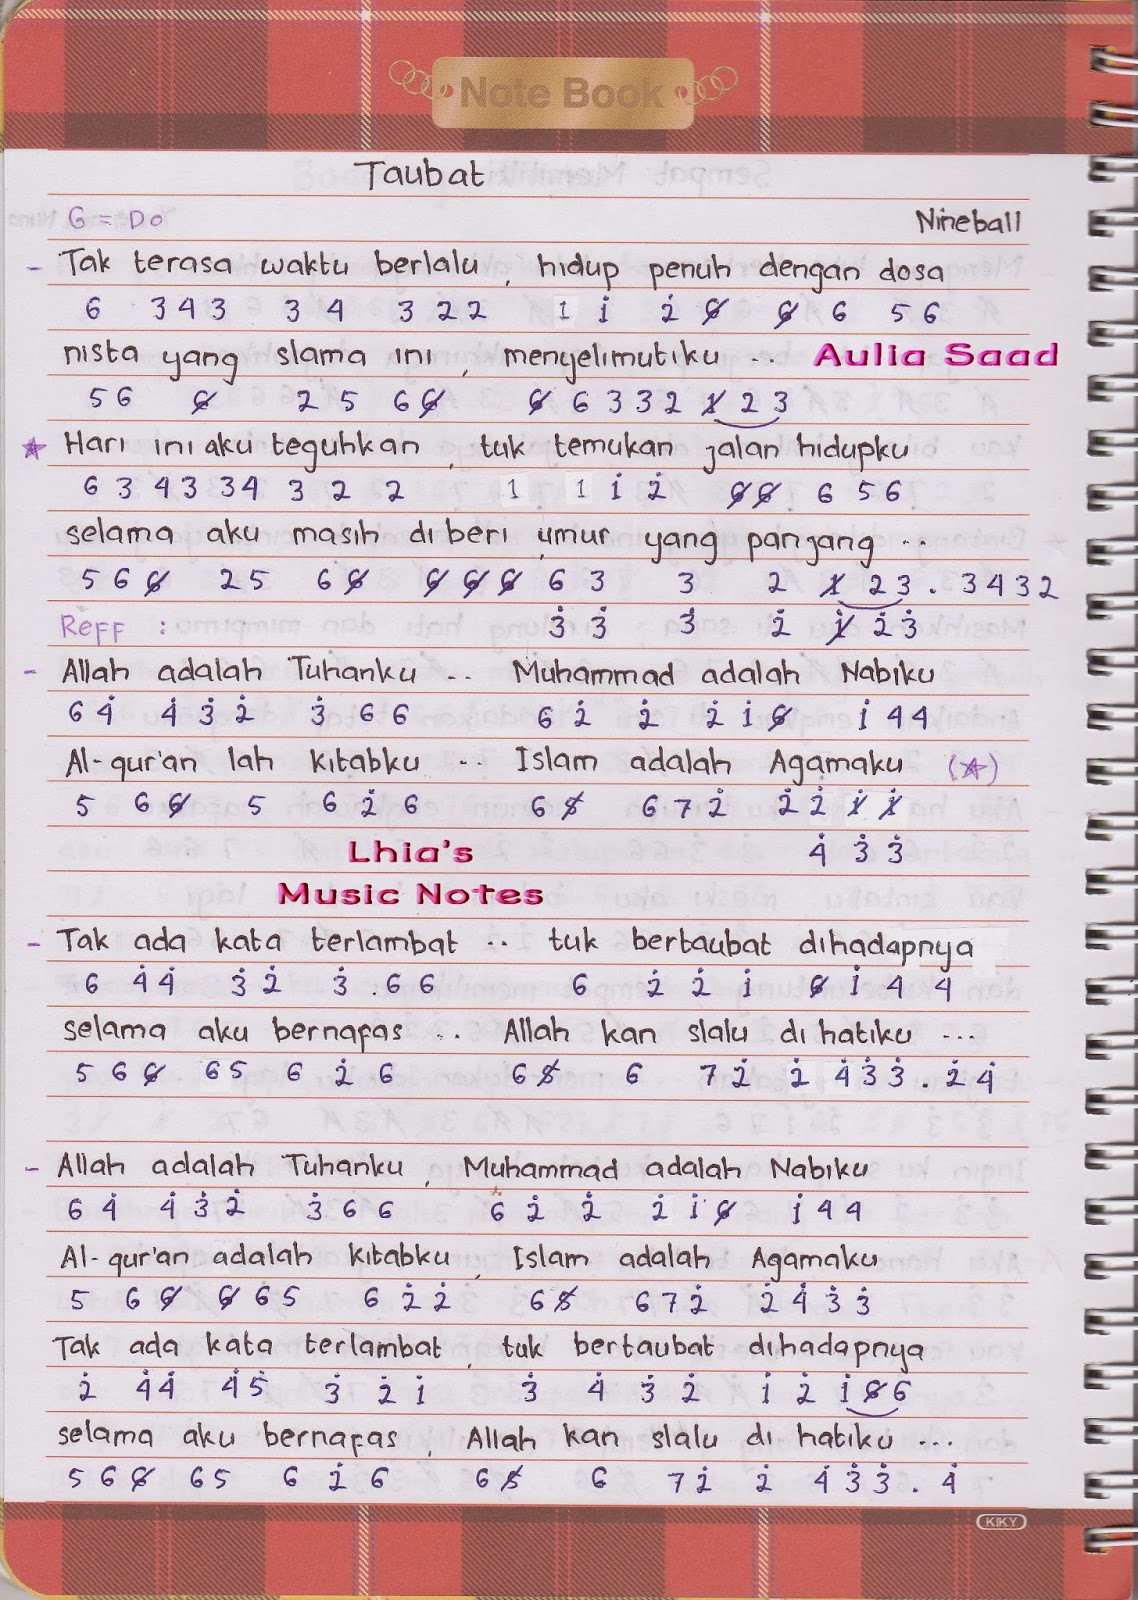 Note Book
Taubat
G = Do
Nineball
- Tak terasa waktu berlalu, hidup penuh dengan dosa
6 3 4 3 3 4 3 2 2 1 i̇ 2̇ 6̸ 6̸ 6 5 6
nista yang slama ini, menyelimutiku ..
Aulia Saad
5 6 6̸ 2 5 6 6̸ 6̸ 6 3 3 2 1̸ 2 3
☆ Hari ini aku teguhkan, tuk temukan jalan hidupku
6 3 4 3 3 4 3 2 2 1 1 1̇ 2̇ 6̸ 6̸ 6 5 6
selama aku masih diberi umur yang panjang ..
5 6 6̸ 2 5 6 6̸ 6̸ 6̸ 6̸ 6 3 3 2 1̸ 2 3 . 3 4 3 2
3̇ 3̇ 3̇ 2̇ 1̸̇ 2̇ 3̇
Reff :
- Allah adalah Tuhanku .. Muhammad adalah Nabiku
6 4̇ 4̇ 3̇ 2̇ 3̇ 6 6 6 2̇ 2̇ 2̇ 1̇ 6̸ 1̇ 4 4
Al-qur'an lah kitabku .. Islam adalah Agamaku (☆)
5 6 6̸ 5 6 2̇ 6 6 5̸ 6 7 2̇ 2̇ 2̇ 1̸̇ 1̸̇
4̇ 3̇ 3̇
Lhia's
Music Notes
- Tak ada kata terlambat .. tuk bertaubat dihadapnya
6 4̇ 4̇ 3̇ 2̇ 3̇ . 6 6 6 2̇ 2̇ 1̇ 6̸ 1̇ 4 4
selama aku bernafas .. Allah kan slalu di hatiku ...
5 6 6̸ 6 5 6 2̇ 6 6 5̸ 6 7 2̇ 2̇ 4̇ 3̇ 3̇ . 2̇ 4̇
- Allah adalah Tuhanku, Muhammad adalah Nabiku
6 4̇ 4̇ 3̇ 2̇ 3̇ 6 6 6 2̇ 2̇ 2̇ 1̇ 6̸ 1̇ 4 4
Al-qur'an adalah kitabku, Islam adalah Agamaku
5 6 6̸ 6̸ 6 5 6 2̇ 2̇ 6 5̸ 6 7 2̇ 2̇ 4̇ 3̇ 3̇
Tak ada kata terlambat, tuk bertaubat dihadapnya
2̇ 4̇ 4̇ 4̇ 5̇ 3̇ 2̇ 1̇ 3̇ 4̇ 3̇ 2̇ 1̇ 2̇ 1̇ 6̸ 6
selama aku bernafas, Allah kan slalu di hatiku ...
5 6 6̸ 6 5 6 2̇ 6 6 5̸ 6 7 2̇ 2̇ 4̇ 3̇ 3̇ . 4̇
KIKY